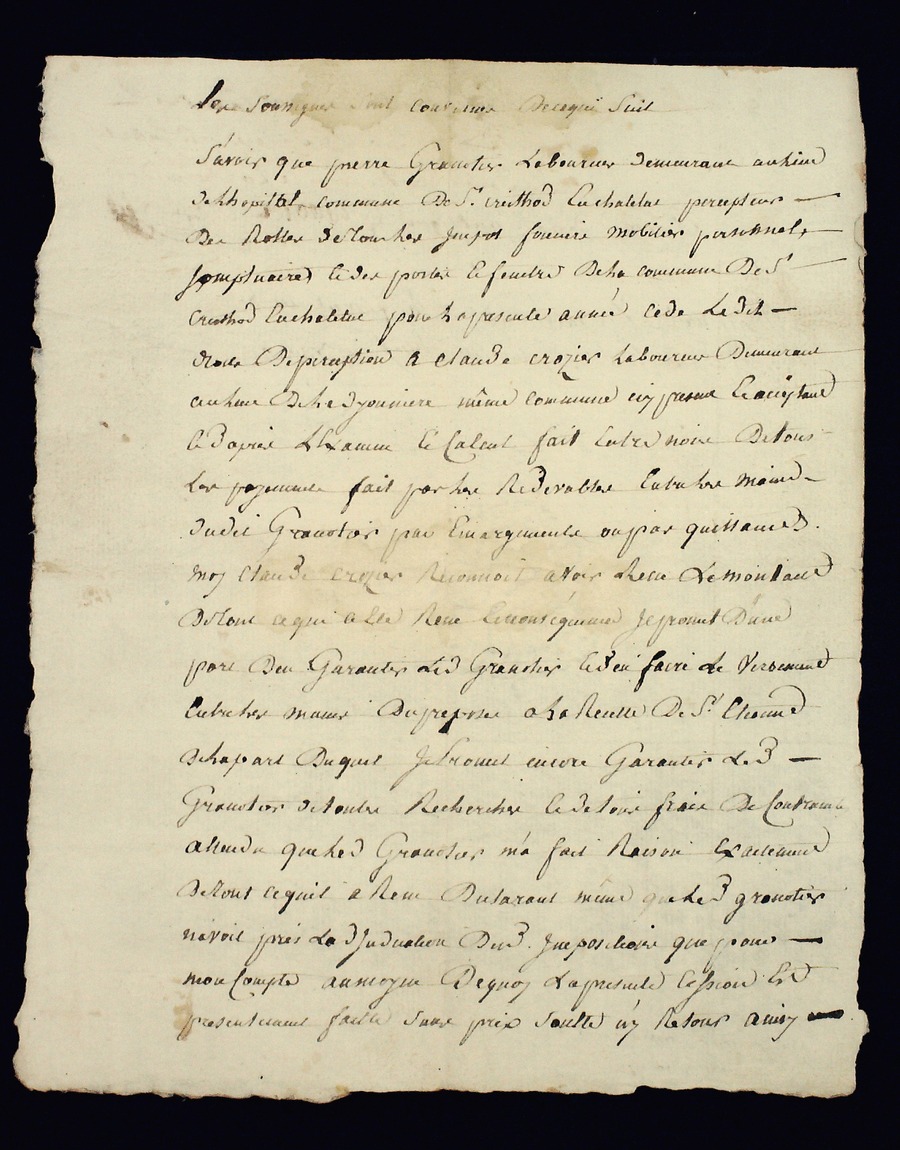 Les Soussignés sont convenus Decequi Suit
Savoir que pierre Granotier Laboureur demeurant au lieu
de Lhopittal commune De St. cristhod Enchatelus percepteur
Des Rolles de Tous les Impot foncière mobilier personnel
somptuaires et des portes et fenetre Dela commune De St
Cristhod Enchatelus pour La presente année cede Le dit
droit De perception a Claude crozier Laboureur Demeurant
au lieu De même commune icy present et acceptant
et d'après L'Examen et Calcul fait Entre nous De tous
Les payements fait par les Redevables Entre les mains
dudit Granotier par Emargements ou par quittances.
moy Claude crozier Reconnoit avoir Recu Le montant
De tout cequi a Eté Recu En conséquence Je promet D'une
part Den Garantir Led Granotier et d'en faire Le Versement
Entre les mains Du preposé a La Recette De St. Etienne
De la part Duquel Je Promet encore Garantir Led
Granotier de toutes Recherches et de tous frais De Contrainte
attendu que Led Granotier m'a fait Raison Exactement
De tout cequil a Recu Declarant même que Led granotier
navoit pris La djudication Desd. Impositions que pour
mon Compte aumoyen Dequoy La presente Cession Est
presentement faitte sans prix soulte n'y Retour ainsy